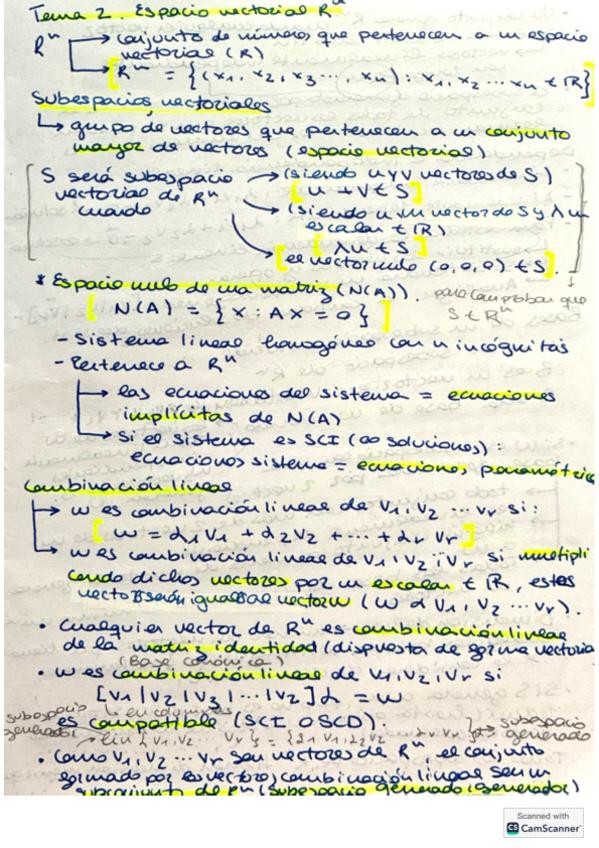 Tema 2. Espacio vectorial Rⁿ
Rⁿ → conjunto de números que pertenecen a un espacio
vectorial (R)
→ [Rⁿ = {(x₁, x₂, x₃ ..., xₙ) : x₁, x₂ ... xₙ ∈ R}]
Subespacios vectoriales
↳ grupo de vectores que pertenecen a un conjunto
mayor de vectores (espacio vectorial)
S será subespacio → (siendo u y v vectores de S)
vectorial de Rⁿ [u + v ∈ S]
cuando → (siendo u un vector de S y λ un
escalar ∈ R)
[λu ∈ S]
[el vector nulo (0,0,0) ∈ S].
* Espacio nulo de una matriz (N(A)). para comprobar que
[N(A) = {x : Ax = 0}] S ∈ Rⁿ
- Sistema lineal homogéneo con n incógnitas
- Pertenece a Rⁿ
→ las ecuaciones del sistema = ecuaciones
implícitas de N(A)
→ Si el sistema es SCI (∞ soluciones):
ecuaciones sistema = ecuaciones paramétrica
Combinación lineal
→ w es combinación lineal de v₁, v₂ ... vr si:
[w = α₁v₁ + α₂v₂ + ... + αr vr]
→ w es combinación lineal de v₁, v₂ ; vr si multipli
cando dichos vectores por un escalar ∈ R, estos
vectores serán igual al vector w (w α v₁, v₂ ... vr).
• Cualquier vector de Rⁿ es combinación lineal
de la matriz identidad (dispuesta de forma vectorial
(Base canónica)
• w es combinación lineal de v₁, v₂, vr si
[v₁ | v₂ | v₃ | ... | v₂] α = w
↳ en columnas
es compatible (SCI o SCD).
subespacio generador → Lin {v₁, v₂ ... vr} = {α₁v₁, α₂v₂ } → subespacio generado
• Como v₁, v₂ ... vr son vectores de Rⁿ, el conjunto
formado por esos vectores combinación lineal será un
subconjunto de Rⁿ (subespacio generado (generador)
Scanned with
CS CamScanner